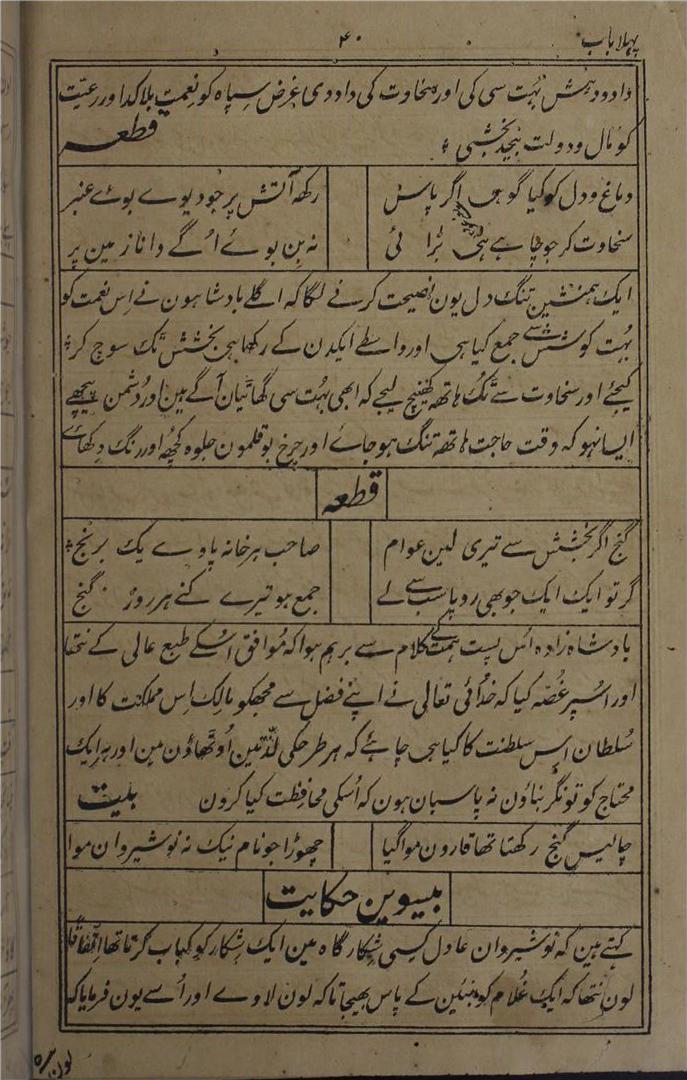 پہلا باب
۴۰
داد و دہش بہت سی کی اور سخاوت کی داد دی غرض سپاہ کو نعمت بلا کد اور رعیت
کو مال و دولت بیحد بخشی
قطعہ
دماغ و دل کو کیا گو ہی اگر پاس
رکھہ آتش پر جو دیوے بوئے عنبر
سخاوت کر جو چاہے ہی بڑائی
نہ بن بوئے اُگے دانا زمین پر
ایک ہمنشین تنگ دل یون نصیحت کرنے لگا کہ اگلے بادشاہون نے اس نعمت کو
بہت کوشش سے جمع کیا ہی اور واسطے ایکدن کے رکھا ہی بخشش تک سوچ کر
کیجئے اور سخاوت سے ٹک ہاتھہ کھینچ لیجے کہ ابھی بہت سی گھاٹیان آگے ہین اور دشمن پیچھے
ایسا نہو کہ وقت حاجت ہاتھہ تنگ ہو جاے اور چرخ بوقلمون جلوہ کچھہ اور رنگ دکھاے
قطعہ
گنج اگر بخشش سے تیری لین عوام
صاحب ہر خانہ پاوے یک برنج
گر تو ایک ایک جو بھی روپا سب سے لے
جمع ہو تیرے کنے ہر روز گنج
بادشاہ زادہ اس پست ہمت کے کلام سے برہم ہوا کہ موافق اسکے طبع عالی کے نتھا
اور اسپر غصہ کیا کہ خدای تعالی نے اپنے فضل سے مجھکو مالک اس مملکت کا اور
سلطان اس سلطنت کا کیا ہی چاہئے کہ ہر طرحکی لذتین اوٹھاؤن مین اور ہر ایک
محتاج کو تونگر بناؤن نہ پاسبان ہون کہ اسکی محافظت کیا کرون
بیت
چالیس گنج رکھتا تھا قارون موا گیا
چھوڑا جو نام نیک نہ نوشیروان موا
بیسوین حکایت
کہتے ہین کہ نوشیروان عادل کسی شکارگاہ مین ایک شکار کو کباب کرتا تھا اتفاقاً
لون نتھا کہ ایک غلام کو بنئین کے پاس بھیجا تا کہ لون لاوے اور اسے یون فرمایا کہ
لون